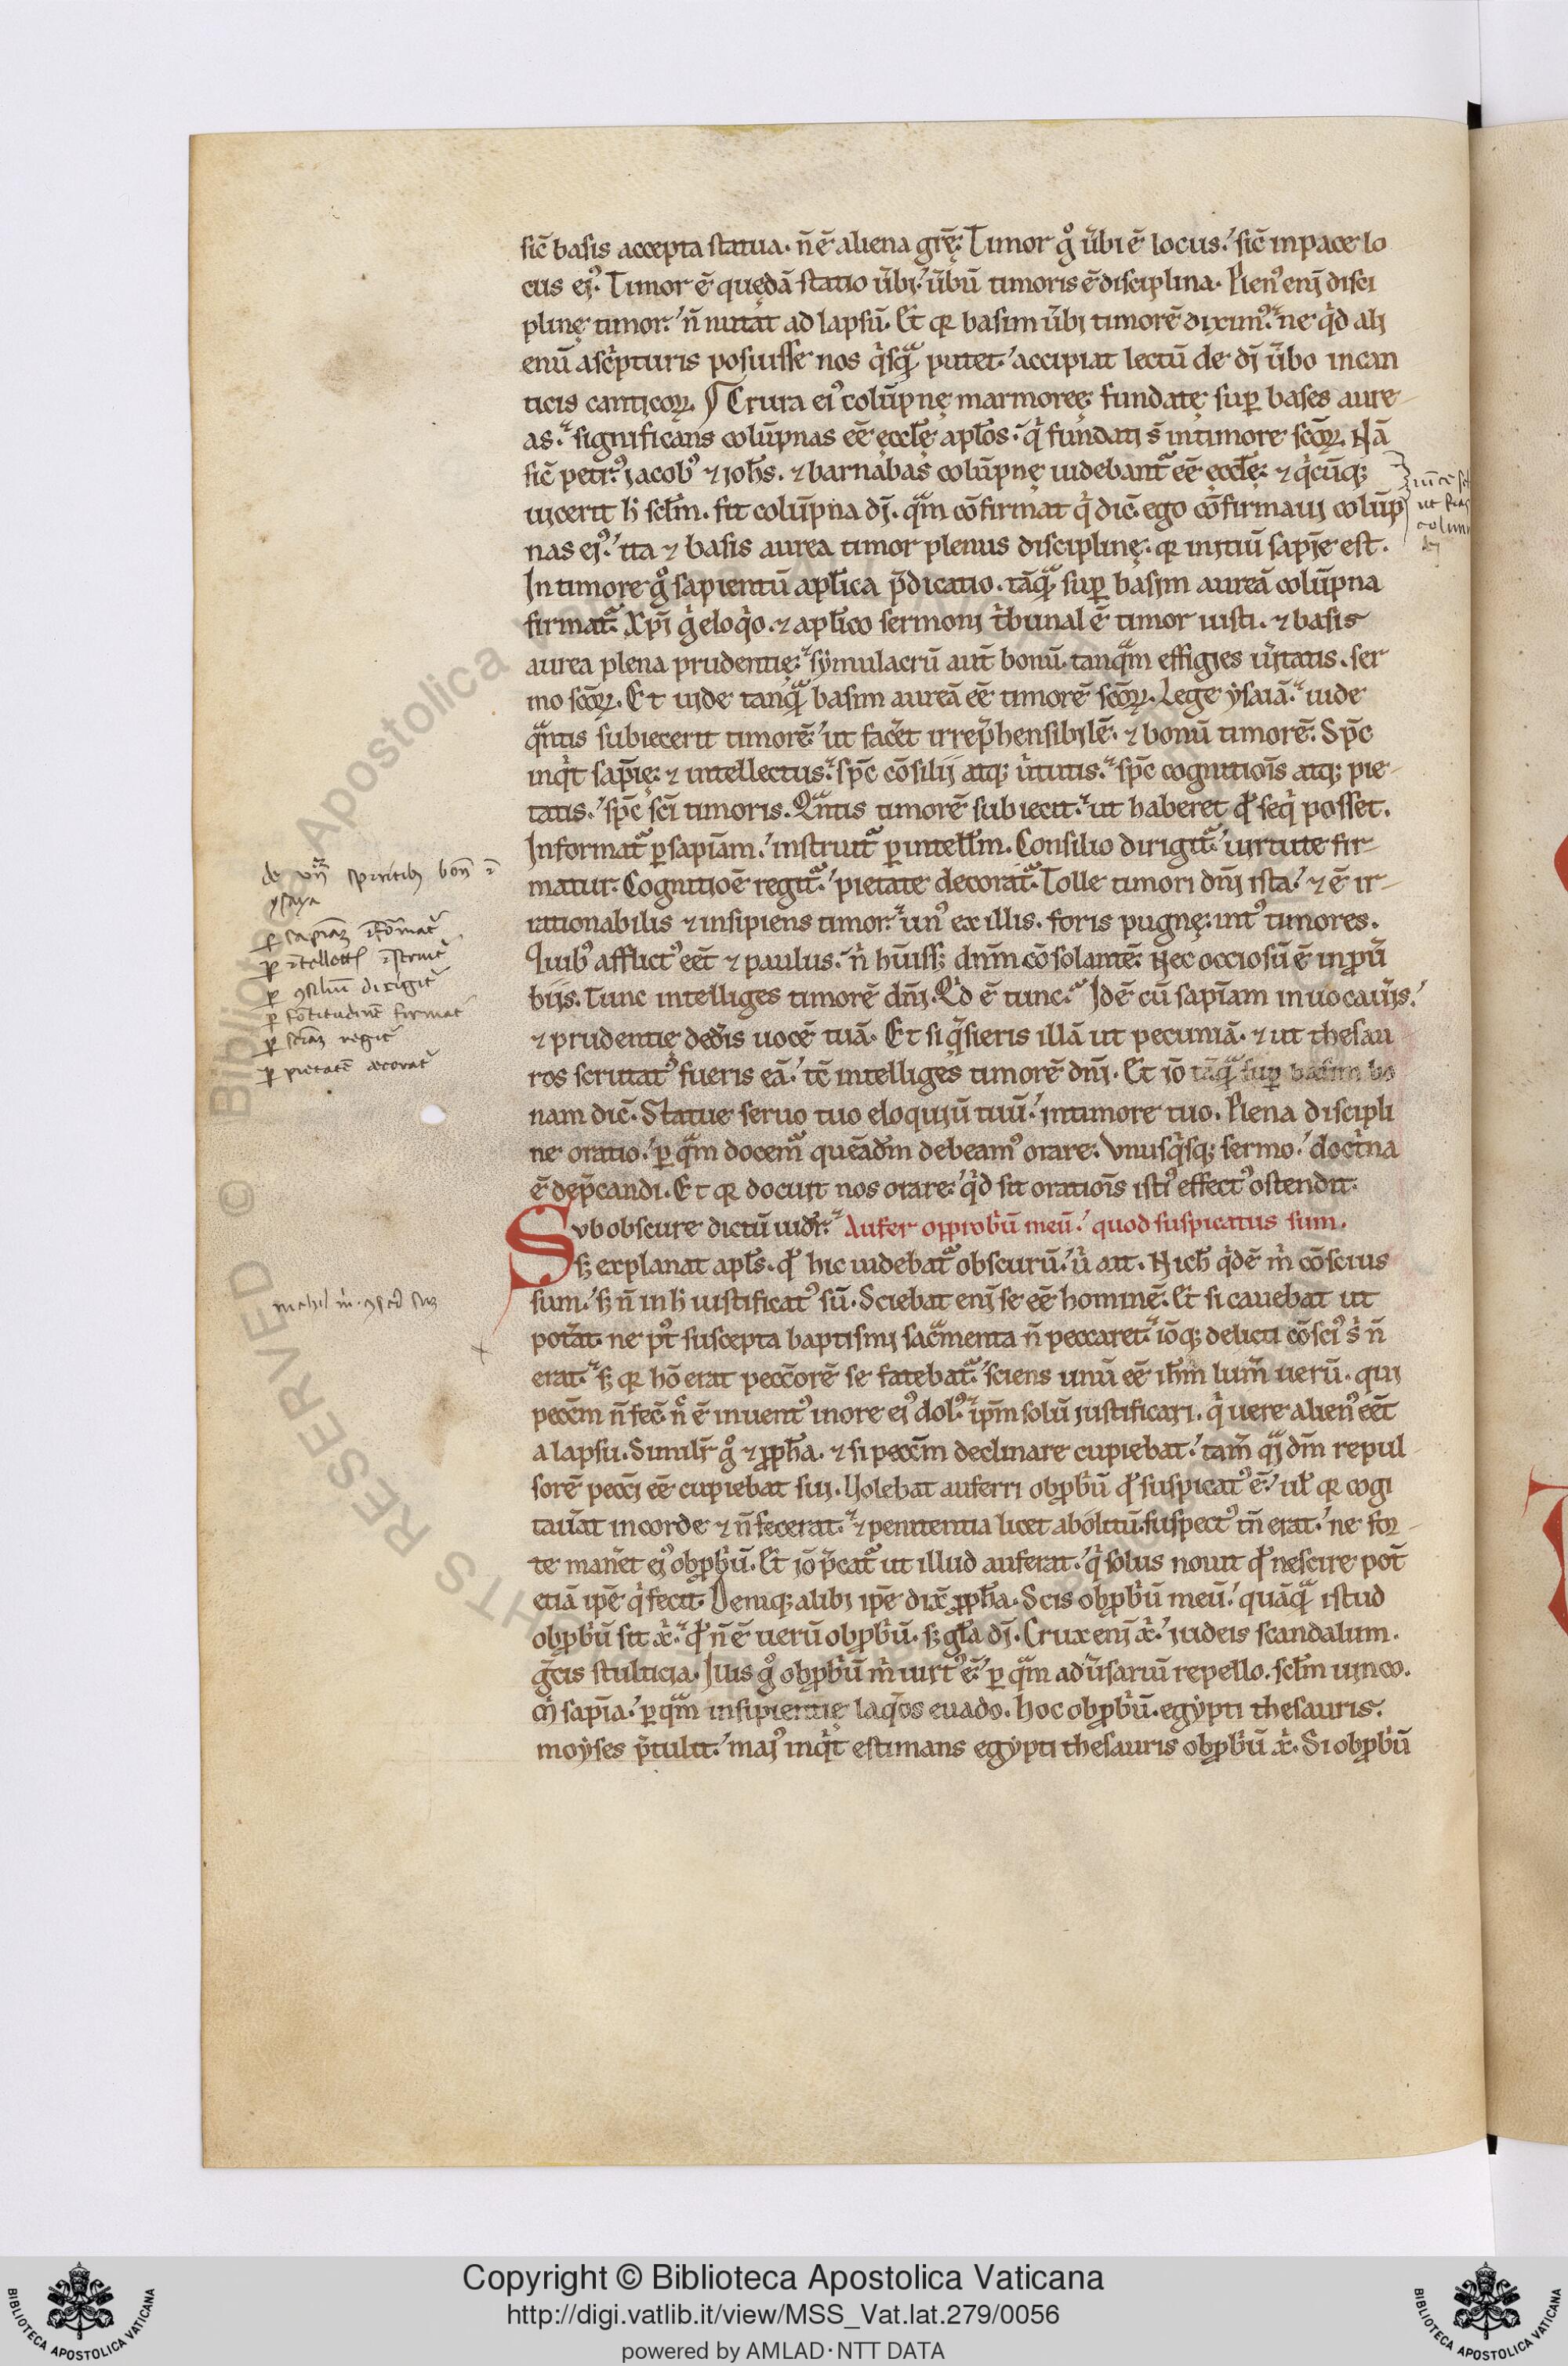 sic̄ basis accepta statua. n̄ ē aliena grē. Timor gͦ ūbi ē locus. sic̄ in pace lo
cus ei᾽. Timor ē quędā statio ūbi. ūbū timoris ē disciplina. Plen᾽ enī disci
plinę timor. n̄ nutat ad lapsū. Et qꝛ basim ūbi timorē dixim᾽. ne qͥd ali
enū ascͥpturis posuisse nos qͥsqᷓ putet. accipiat lectū de dī ūbo in can
ticis canticoꝝ. Crura ei᾽ colūpnę marmoreę fundatę suꝑ bases aure
as. significans colūpnas eē ęccłę apłos. qͥ fundati s̄ in timore scōꝝ. Nā
sic̄ petr᾽. iacob᾽ ⁊ ioħs. ⁊ barnabas colūpnę uidebant᷑ eē ęccłę. ⁊ qͥcūqꝫ
uicerit ħ scłm. fit colūpna dī. qᷓm cōfirmat qͥ dic̄. ego cōfirmaui colūp
nas ei᾽. ita ⁊ basis aurea timor plenus disciplinę. qꝛ initiū sapīe est.
In timore gͦ sapientū apłica p̄dicatio. tāqᷓ suꝑ basim aureā colūpna
firmat᷑. Xp̄i gͥ eloqͥo. ⁊ apłico sermoni tͥbunal ē timor iusti. ⁊ basis
aurea plena prudentię. symulacrū aut̄ bonū. tanqᷓm effigies ūitatis. ser
mo scōꝝ. Et uide tanqᷓ basim aureā eē timorē scōꝝ. Lege ysaiā. uide
qᷓntis subiecerit timorē. ut facēt irrep̄hensibilē. ⁊ bonū timorē. Sp̄c
inqͥt sapīę. ⁊ intellectus. sp̄c cōsilii atqꝫ uͥtutis. sp̄c cognitiōis atqꝫ pie
tatis. sp̄c sc̄i timoris. Qᷓntis timorē subiecit. ut haberet qͩ seqͥ posset.
Informat᷑ ꝑ sapiām. instruit᷑ ꝑ intellm̄. Consilio dirigit᷑. uirtute fir
matur. Cognitiōe regit᷑. pietate decorat᷑. Tolle timori dn̄i ista. ⁊ ē ir
rationabilis ⁊ insipiens timor. un᾽ ex illis. foris pugnę. int᾽ timores.
Quib᾽ afflict᾽ eēt ⁊ paulus. nͥ hūissꝫ dn̄m cōsolantē. Nec occiosū ē in ꝓū
biis. Tunc intelliges timorē dn̄i. Qͥd ē tunc. Idē cū sapīam inuocaūis.
⁊ prudentię dedīs uocē tuā. Et si qͥsieris illā ut pecuniā. ⁊ ut thesau
ros scrutat᾽ fueris eā. tc̄ intelliges timorē dn̄i. Et iō tāqᷓ suꝑ basim bo
nam dic̄. Statue seruo tuo eloquiū tuū. in timore tuo. Plena discipli
ne oratio. ꝑ qᷓm docem᷑ queādm̄ debeam᾽ orare. Vnusqͥsqꝫ sermo. doctͥna
ē dep̄candi. Et qꝛ docuit nos orare. qͥd sit oratiōis isti᾽ effect᾽ ostendit.
Svb obscure dictū uidet᷑. Aufer opprobͥū meū. quod suspicatus sum.
sꝫ explanat apłs. qͩ hic uidebat᷑ obscurū. uͥ ait. Nich̄ qͥdē mͥ cōscius
sum. sꝫ n̄ in ħ iustificat᾽ sū. Sciebat enī se eē hominē. Et si cauebat ut
potat̄. ne p᾽t suscepta baptismi sacᷓmenta n̄ peccaret. iōqꝫ delicti cōsci᾽ sͥ n̄
erat. sꝫ qꝛ hō erat pecc̄orē se fatebat᷑. sciens unū eē ihm̄ lum̄ uerū. qui
pecc̄m n̄ fec̄. nͨ ē inuent᾽ in ore ei᾽ dol᾽. ip̄m solū iustificari. qͥ uere alien᾽ eēt
a lapsu. Similr̄ gͦ ⁊ ꝓpħa. ⁊ si pecc̄m declinare cupiebat. tam̄ qᷓ dm̄ repul
sorē pecc̄i eē cupiebat sui. Uolebat auferri obꝓbͥū qͩ suspicat᾽ ē. ul̄ qꝛ cogi
tau̅at in corde ⁊ n̄ fecerat. ⁊ penitentia licet abolitū. suspect᾽ tn̄ erat. ne foꝛ
te man̄et ei᾽ obꝓbͥū. Et iō p̄cat᷑ ut illud auferat. qͥ solus nouit qͩ nescire pot̄
etiā ip̄e qͥ fecit. Deniqꝫ alibi ip̄e dix̄ ꝓpħa. Scis obꝓbͥū meū. quāqᷓ istud
obꝓbͥū sit xͥ. qͩ n̄ ē uerū obꝓbͥū. sꝫ gła dī. Crux enī xͥ. iudeis scandalum.
gͣcis stulticia. Iuis gͦ obꝓbͥū mͥ uirt᾽ ē. ꝑ qᷓm adūsariū repello. scłm uinco.
mͥ sapīa. ꝑ qᷓm insipientię laqͦs euado. hoc obꝓbͥū. egypti thesauris.
moyses p̄tulit. mai᾽ inqͥt estimans egypti thesauris obꝓbͥū xͥ. Si obꝓbͥū
ysaya
ꝑ sapiam̄ īformat᷑
ꝑ ītellect̄ īstruit᷑
ꝑ ꝯsiliū dirigit᷑
ꝑ fortitudinē firmat᷑
ꝑ sciam̄ regit᷑
ꝑ pietatē decorat᷑
Copyright © Biblioteca Apostolica Vaticana
http://digi.vatlib.it/view/MSS_Vat.lat.279/0056
powered by AMLAD·NTT DATA
BIBLIOTECA APOSTOLICA VATICANA
BIBLIOTECA APOSTOLICA VATICANA